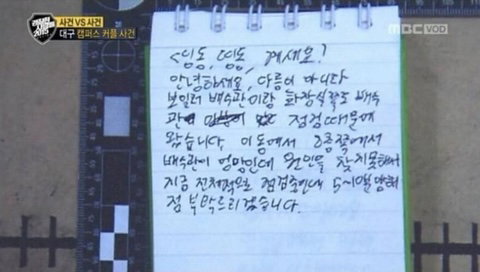 사건 VS 사건
대구 캠퍼스 커플 사건
MBC VOD
<띵동, 띵동, 계세요?
안녕하세요, 다름이 아니라
보일러 배수관이랑 화장실쪽도 배수
관 점검때문에
왔습니다. 이동에서 2층쪽에서
배수관이 엉망인데 원인을 찾지못해서
지금 전체적으로 점검중인데 5~10분
점 부탁드리겠습니다.